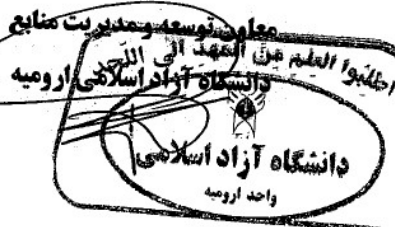 معاون توسعه و مدیریت منابع
دانشگاه آزاد اسلامی ارومیه
اطلبوا العلم من المهد الی اللحد
دانشگاه آزاد اسلامی
واحد ارومیه